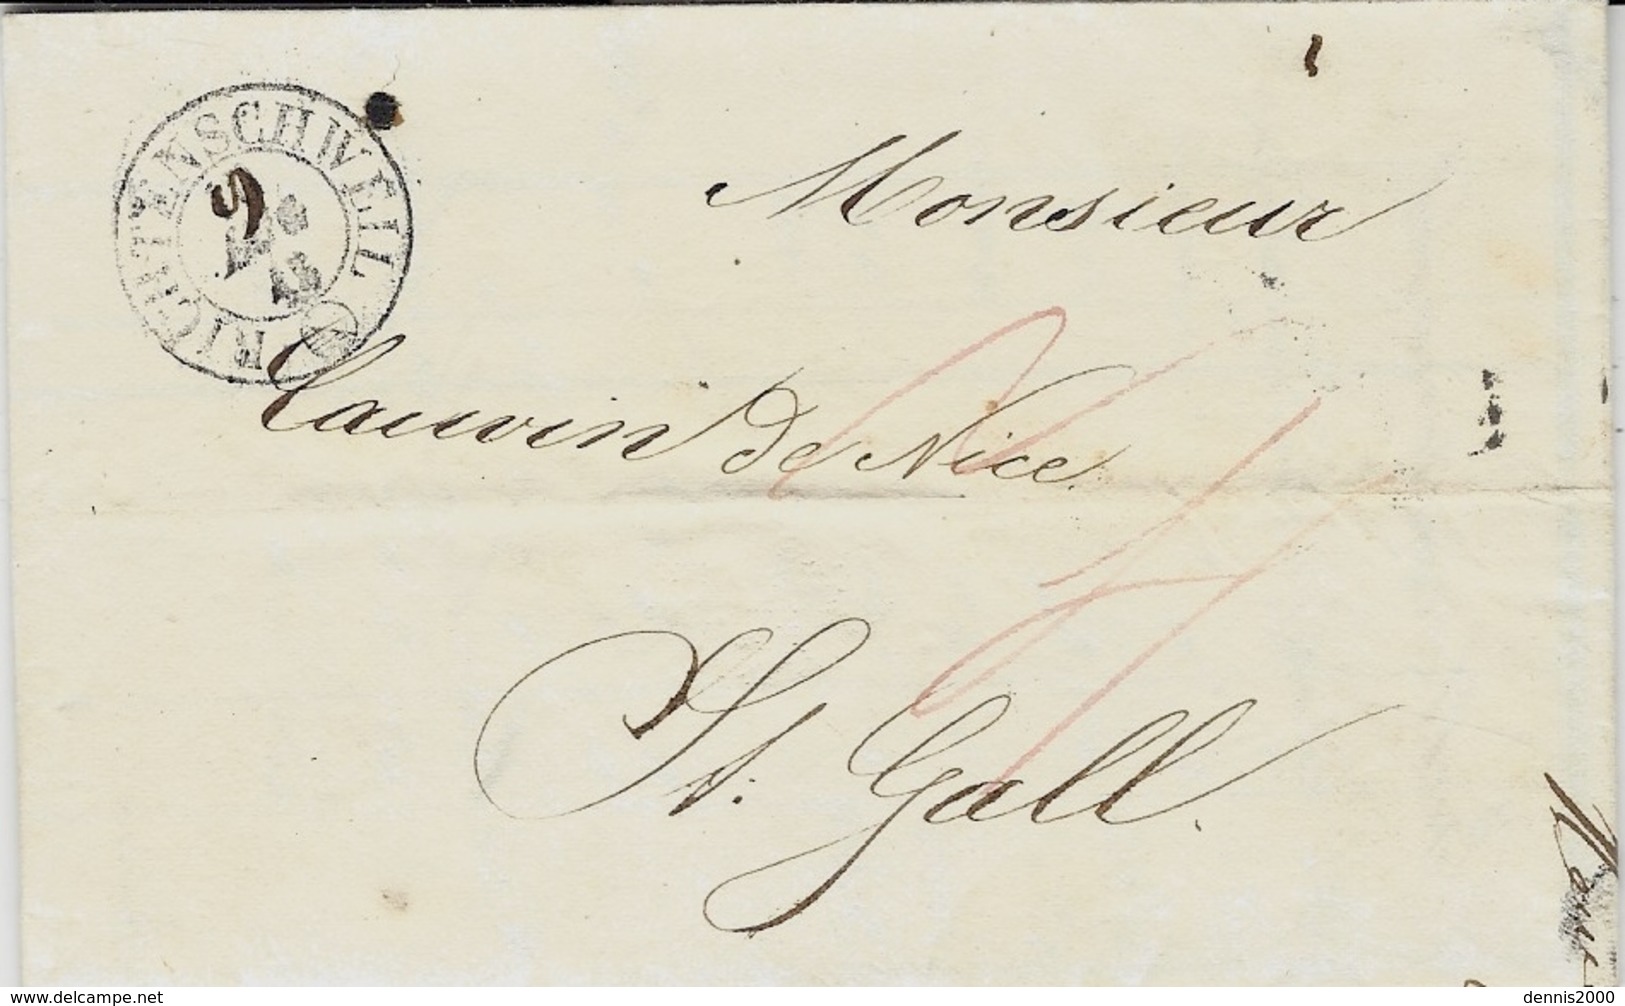 RICHTENSCHWEIL
9
Monsieur
Cauvin de Nice
St. Gall.
www.delcampe.net
dennis2000